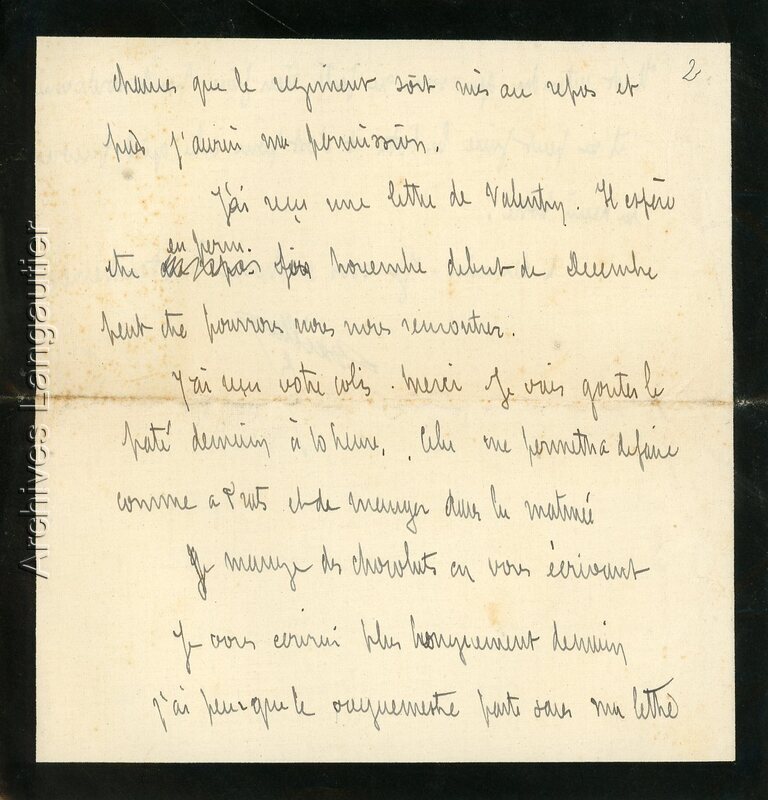 2
chances que le regiment soit mis au repos et
puis j'aurai ma permission.
J'ai reçu une lettre de Valentry. Il espère
en perm.
etre fin novembre debut de Decembre
peut etre pourrons nous nous rencontrer.
J'ai reçu votre colis. Merci Je vais gouter le
paté demain à 10 heure. Cela me permettra de faire
comme a et de manger dans la matinée
Je mange des chocolats en vous écrivant
Je vous ecrirai plus longuement demain
j'ai peur que le vaguemestre parte sans ma lettre
Archives Langautier